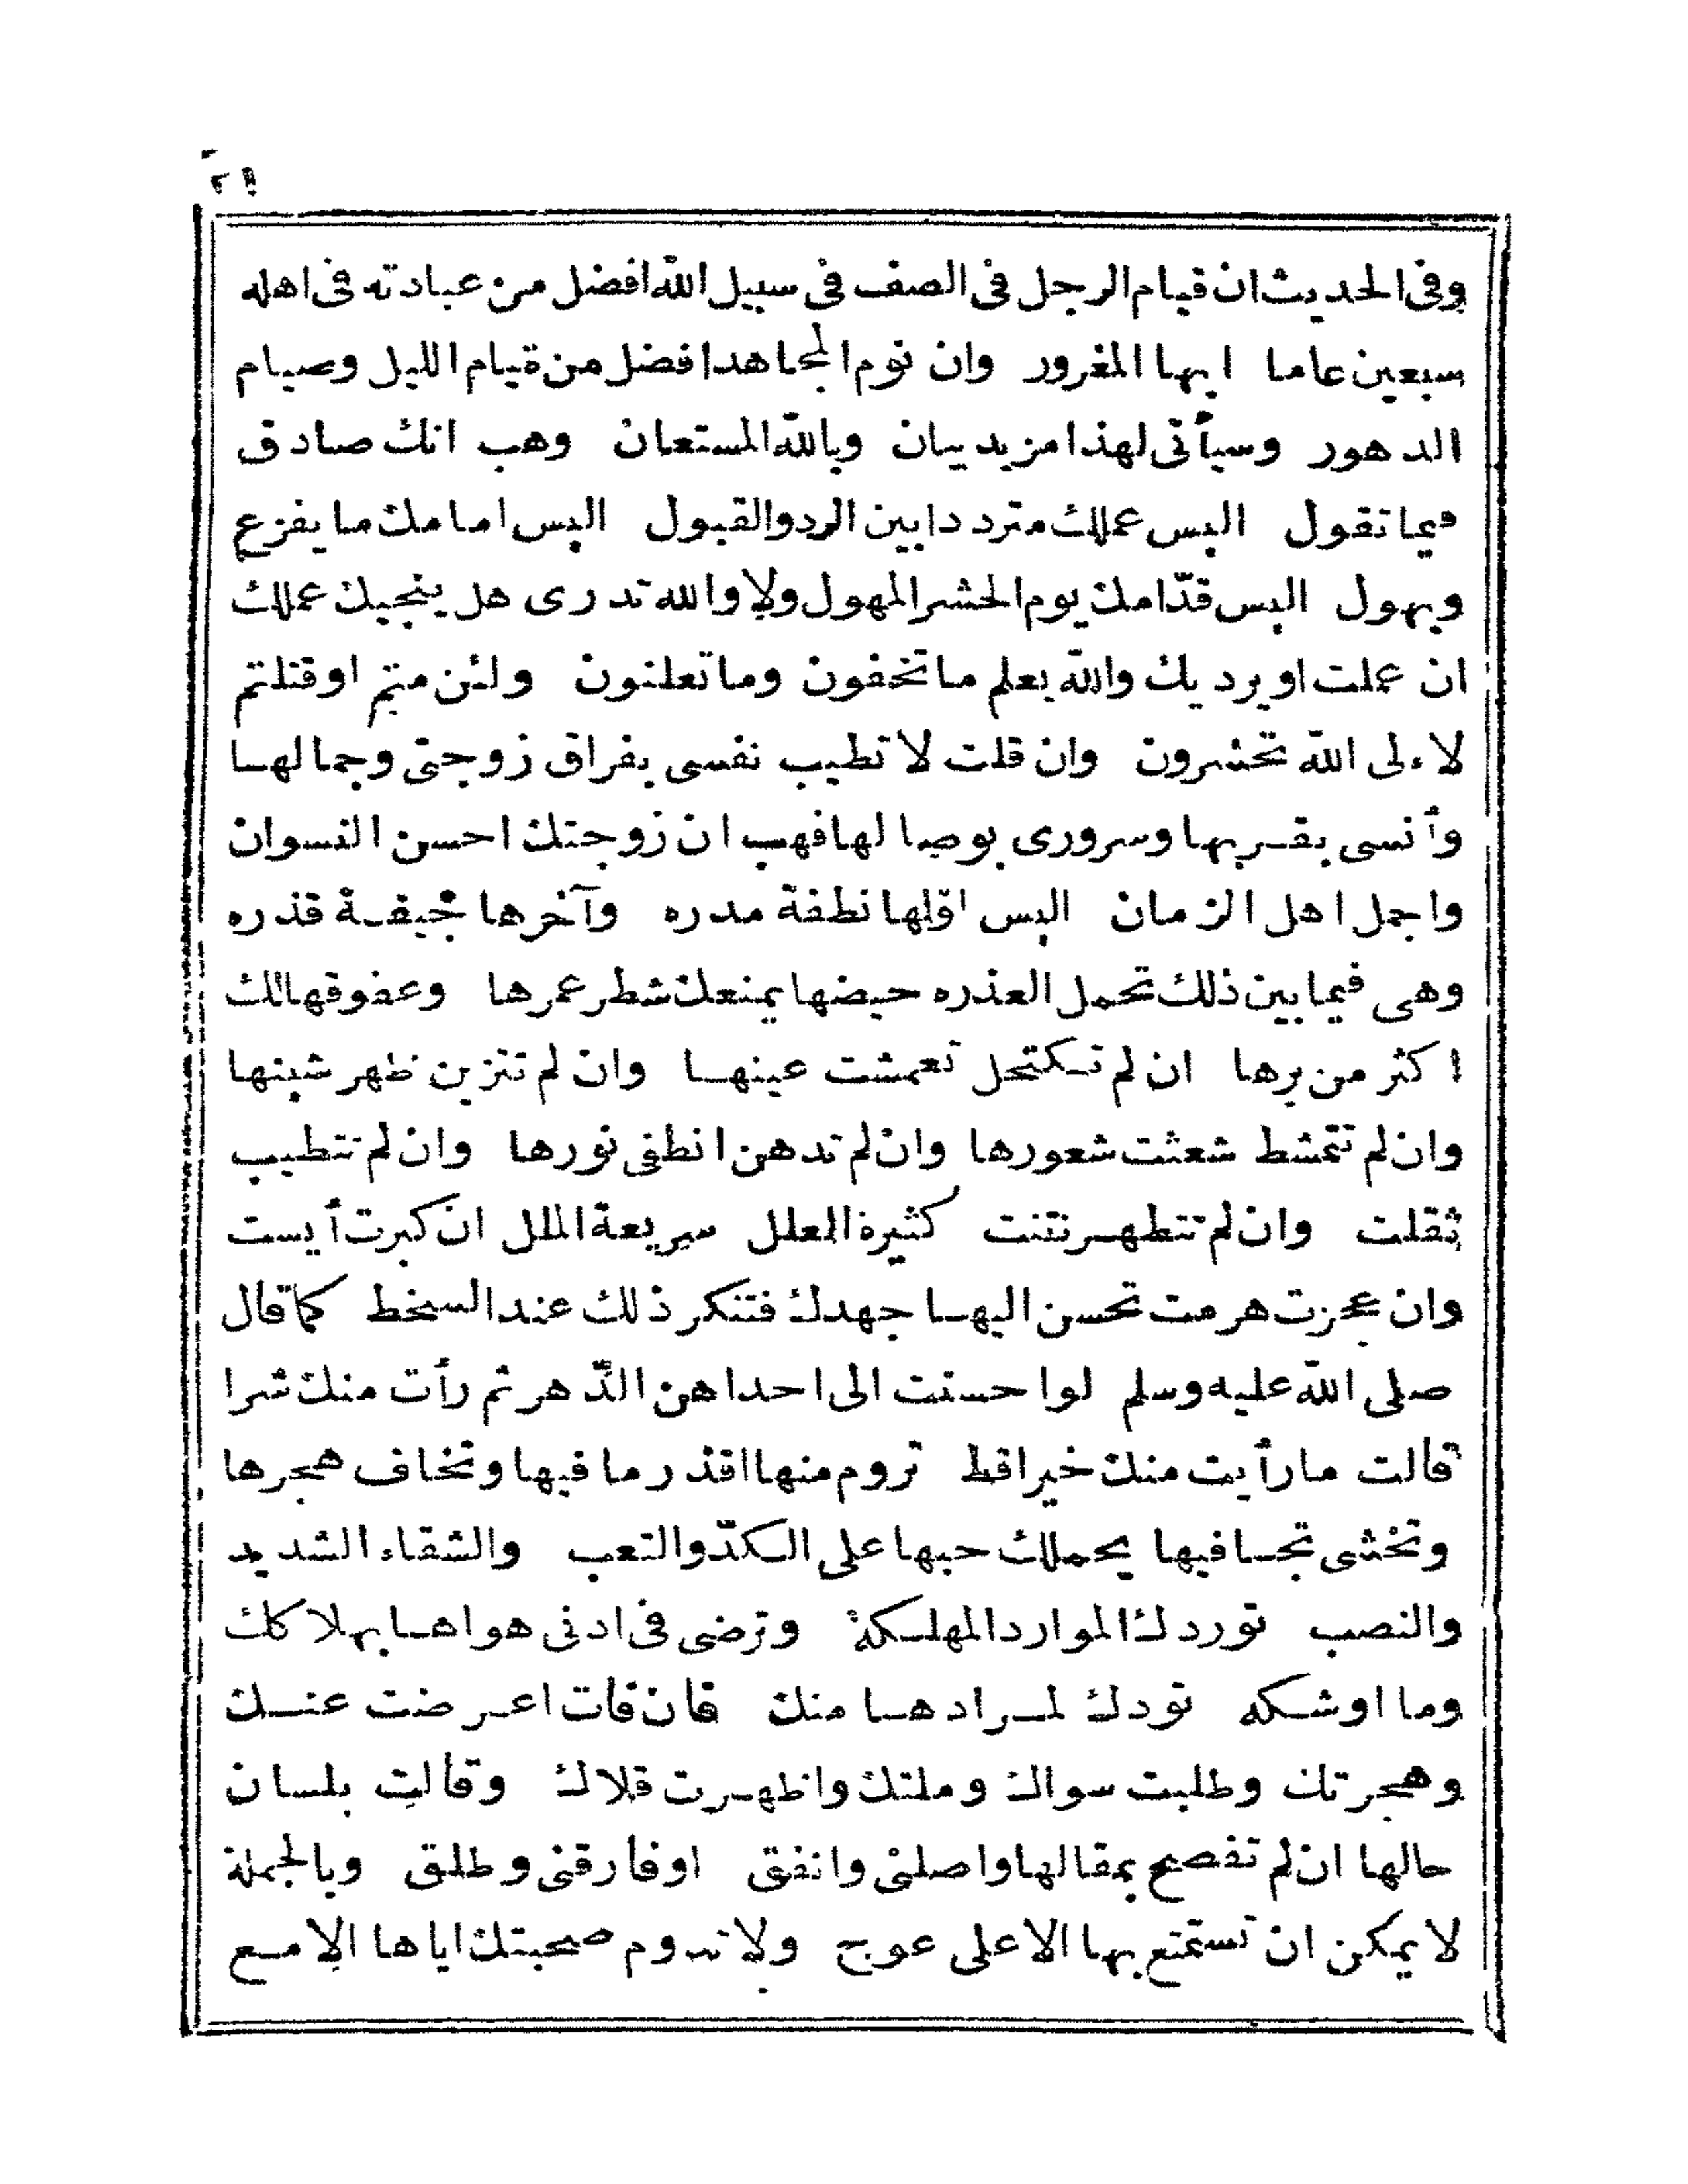 وفى الحديث ان قيام الرجل فى الصف فى سبيل اللّه افضل من عبادته فى اهله
سبعين عاما ايها المغرور وان نوم المجاهد افضل من قيام الليل وصيام
الدهور وسيأتى لهذا مزيد بيان وباللّه المستعان وهب انك صادق
فيما تقول اليس عملك مترددا بين الرد والقبول اليس امامك ما يفزع
ويهول اليس قدّامك يوم الحشر المهول ولا والله تدرى هل ينجيك عملك
ان عملت او يرديك واللّه يعلم ما تخفون وما تعلنون ولئن متم او قتلتم
لاءلى اللّه تحشرون وان قلت لا تطيب نفسى بفراق زوجتى وجمالها
وأنسى بقربها وسرورى بوصالها فهب ان زوجتك احسن النسوان
واجمل اهل الزمان اليس اوّلها نطفة مدره وآخرها جيفة قذره
وهى فيما بين ذلك تحمل العذره حيضها يمنعك شطر عمرها وعقوقها لك
اكثر من برها ان لم تكتحل تعمشت عينها وان لم تتزين ظهر شينها
وان لم تتمشط شعثت شعورها وان لم تدهن انطفى نورها وان لم تتطيب
ثقلت وان لم تتطهر نتنت كثيرة العلل سريعة الملل ان كبرت أيست
وان عجزت هرمت تحسن اليها جهدك فتنكر ذلك عند السخط كما قال
صلى اللّه عليه وسلم لو احسنت الى احداهن الدّهر ثم رأت منك شرا
قالت ما رأيت منك خيرا قط تروم منها اقذر ما فيها وتخاف هجرها
وتخشى تجافيها يحملك حبها على الكدّ والتعب والشقاء الشديد
والنصب توردك الموارد المهلكة وترضى فى ادنى هواها بهلاكك
وما اوشكه تودك لمرادها منك فان فات اعرضت عنك
وهجرتك وطلبت سواك وملتك واظهرت قلاك وقالت بلسان
حالها ان لم تفصح بمقالها واصلنى وانفق او فارقنى وطلق وبالجملة
لا يمكن ان تستمتع بها الا على عوج ولا تدوم صحبتك اياها الا مع